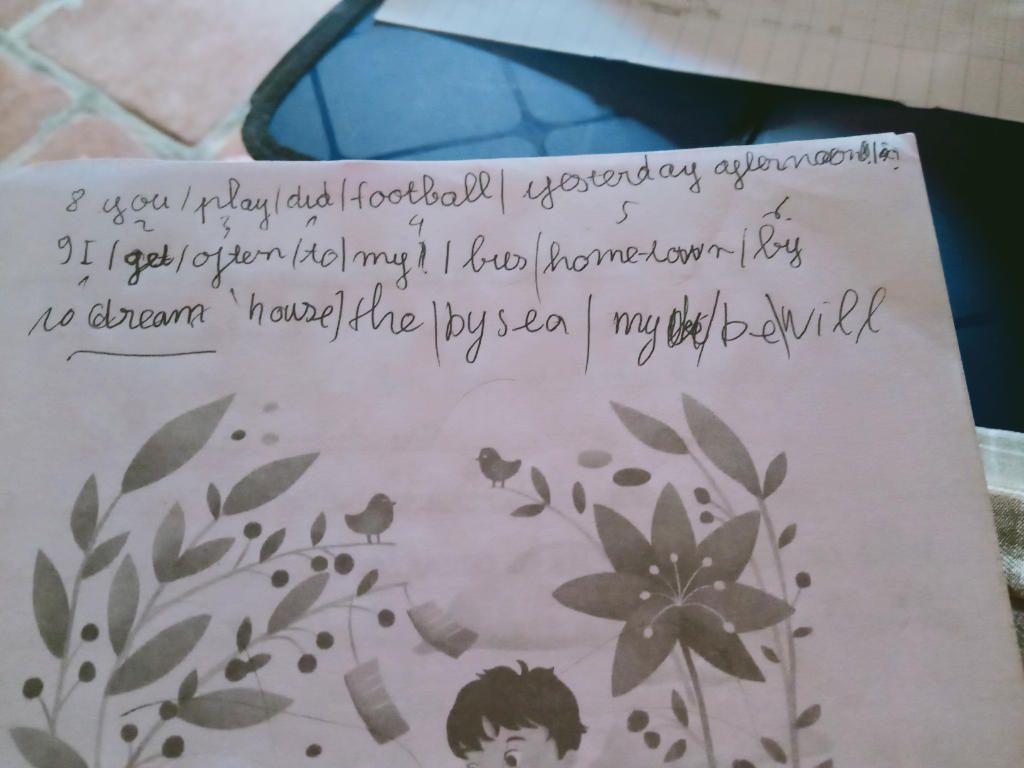 8 you / play / did / football / yesterday afternoon
2 3 1 4 5 6
9 I / get / often / to / my / bus / hometown / by
10 dream house / the / by sea / my / be / will